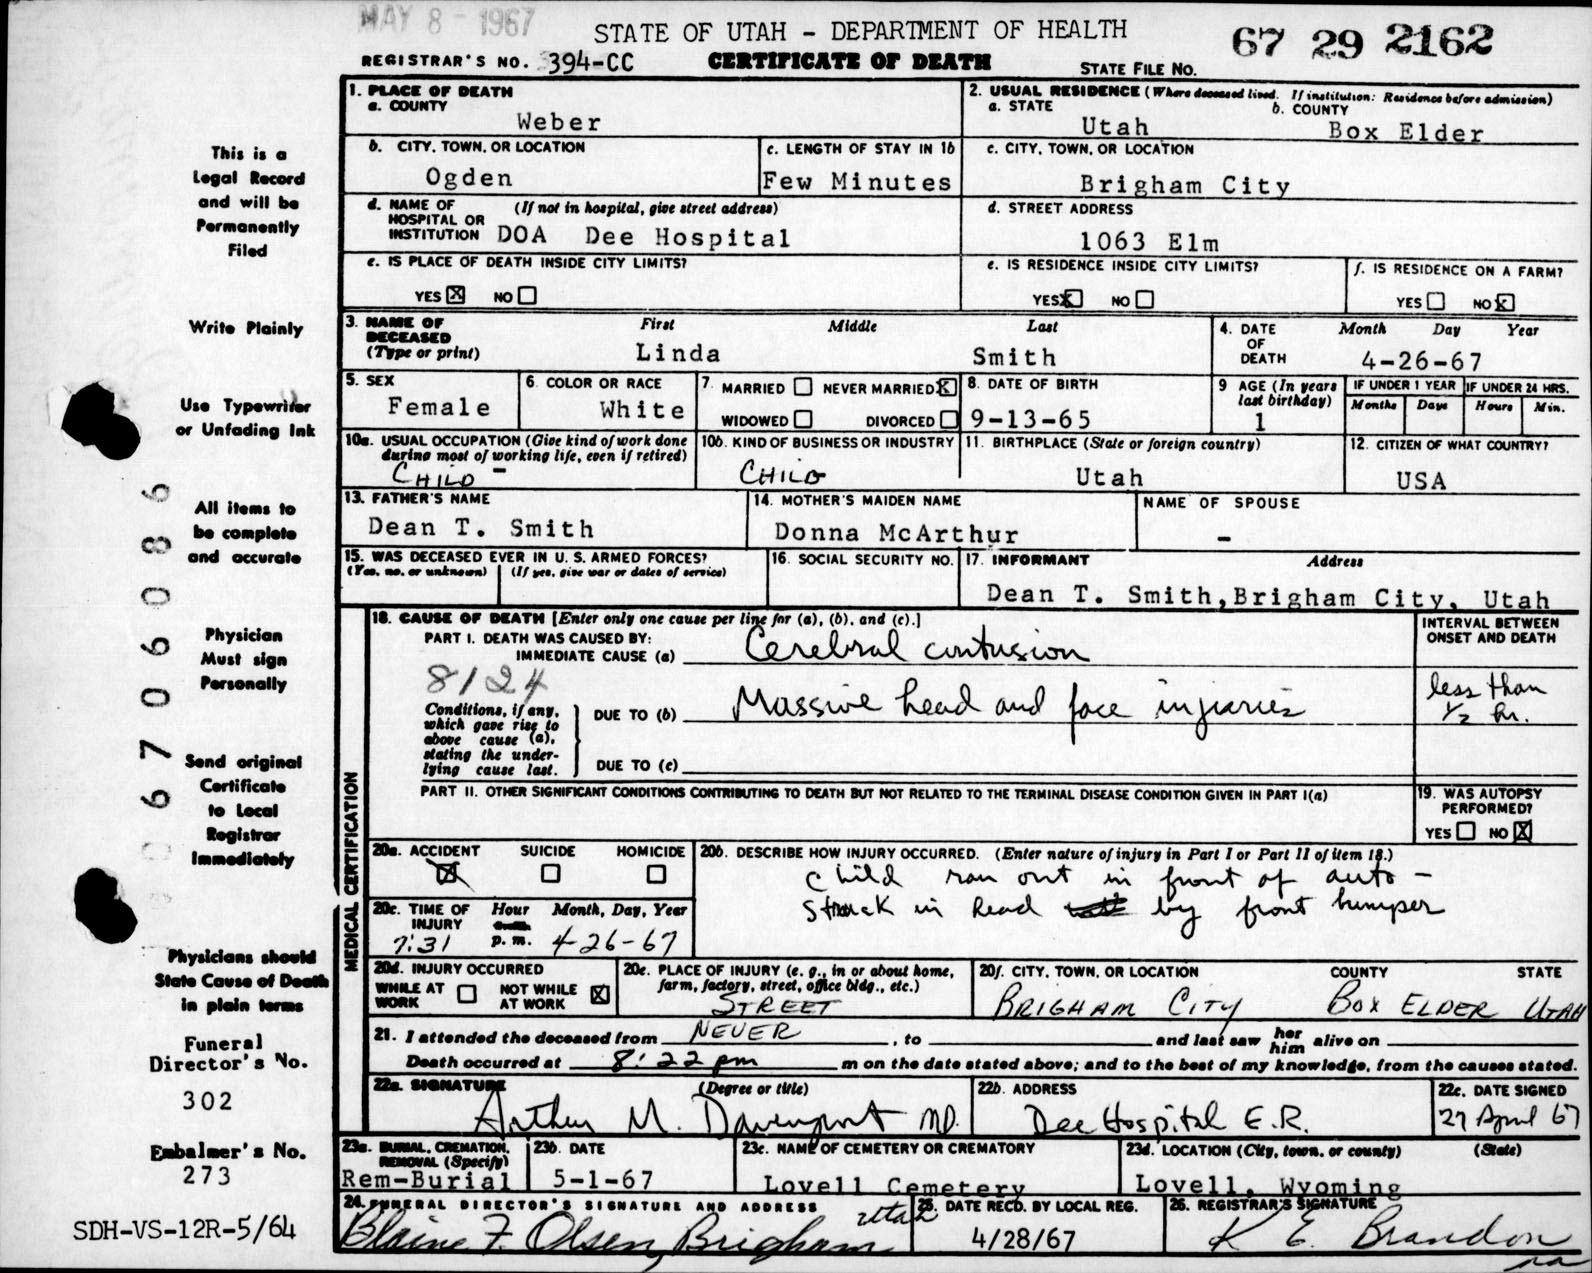 MAY 8 - 1967
STATE OF UTAH - DEPARTMENT OF HEALTH
67 29 2162
REGISTRAR'S NO. 394-CC
CERTIFICATE OF DEATH
STATE FILE NO.
This is a
Legal Record
and will be
Permanently
Filed
Write Plainly
Use Typewriter
or Unfading Ink
All items to
be complete
and accurate
Physician
Must sign
Personally
Send original
Certificate
to Local
Registrar
Immediately
Physicians should
State Cause of Death
in plain terms
Funeral
Director's No.
302
Embalmer's No.
273
SDH-VS-12R-5/64
067060086
1. PLACE OF DEATH
a. COUNTY
Weber
2. USUAL RESIDENCE (Where deceased lived. If institution: Residence before admission)
a. STATE
Utah
b. COUNTY
Box Elder
b. CITY, TOWN, OR LOCATION
Ogden
c. LENGTH OF STAY IN 1b
Few Minutes
c. CITY, TOWN, OR LOCATION
Brigham City
d. NAME OF (If not in hospital, give street address)
HOSPITAL OR
INSTITUTION DOA Dee Hospital
d. STREET ADDRESS
1063 Elm
e. IS PLACE OF DEATH INSIDE CITY LIMITS?
YES X NO
e. IS RESIDENCE INSIDE CITY LIMITS?
YES X NO
f. IS RESIDENCE ON A FARM?
YES NO X
3. NAME OF
DECEASED
(Type or print)
First Middle Last
Linda Smith
4. DATE
OF
DEATH
Month Day Year
4-26-67
5. SEX
Female
6. COLOR OR RACE
White
7. MARRIED NEVER MARRIED X
WIDOWED DIVORCED
8. DATE OF BIRTH
9-13-65
9 AGE (In years
last birthday)
1
IF UNDER 1 YEAR IF UNDER 24 HRS.
Months Days Hours Min.
10a. USUAL OCCUPATION (Give kind of work done
during most of working life, even if retired)
CHILD -
10b. KIND OF BUSINESS OR INDUSTRY
CHILD
11. BIRTHPLACE (State or foreign country)
Utah
12. CITIZEN OF WHAT COUNTRY?
USA
13. FATHER'S NAME
Dean T. Smith
14. MOTHER'S MAIDEN NAME
Donna McArthur
NAME OF SPOUSE
-
15. WAS DECEASED EVER IN U. S. ARMED FORCES?
(Yes, no, or unknown) (If yes, give war or dates of service)
16. SOCIAL SECURITY NO.
17. INFORMANT Address
Dean T. Smith, Brigham City, Utah
MEDICAL CERTIFICATION
18. CAUSE OF DEATH [Enter only one cause per line for (a), (b), and (c).]
PART I. DEATH WAS CAUSED BY:
IMMEDIATE CAUSE (a) Cerebral contusion
INTERVAL BETWEEN
ONSET AND DEATH
8124
Conditions, if any,
which gave rise to
above cause (a),
stating the under-
lying cause last.
DUE TO (b) Massive head and face injuries
less than
1/2 hr.
DUE TO (c)
PART II. OTHER SIGNIFICANT CONDITIONS CONTRIBUTING TO DEATH BUT NOT RELATED TO THE TERMINAL DISEASE CONDITION GIVEN IN PART I(a)
19. WAS AUTOPSY
PERFORMED?
YES NO X
20a. ACCIDENT SUICIDE HOMICIDE
X
20b. DESCRIBE HOW INJURY OCCURRED. (Enter nature of injury in Part I or Part II of item 18.)
Child ran out in front of auto -
Struck in head by front bumper
20c. TIME OF
INJURY
Hour Month, Day, Year
7:31 p. m. 4-26-67
20d. INJURY OCCURRED
WHILE AT
WORK
NOT WHILE
AT WORK X
20e. PLACE OF INJURY (e. g., in or about home,
farm, factory, street, office bldg., etc.)
STREET
20f. CITY, TOWN, OR LOCATION COUNTY STATE
BRIGHAM CITY BOX ELDER UTAH
21. I attended the deceased from NEVER, to and last saw her him alive on
Death occurred at 8:22 pm m on the date stated above; and to the best of my knowledge, from the causes stated.
22a. SIGNATURE (Degree or title)
Arthur M. Davenport MD.
22b. ADDRESS
Dee Hospital E.R.
22c. DATE SIGNED
27 April 67
23a. BURIAL, CREMATION,
REMOVAL (Specify)
Rem-Burial
23b. DATE
5-1-67
23c. NAME OF CEMETERY OR CREMATORY
Lovell Cemetery
23d. LOCATION (City, town, or county) (State)
Lovell, Wyoming
24. FUNERAL DIRECTOR'S SIGNATURE AND ADDRESS
Blaine F. Olsen, Brigham Utah
25. DATE RECD. BY LOCAL REG.
4/28/67
26. REGISTRAR'S SIGNATURE
K E. Brandon